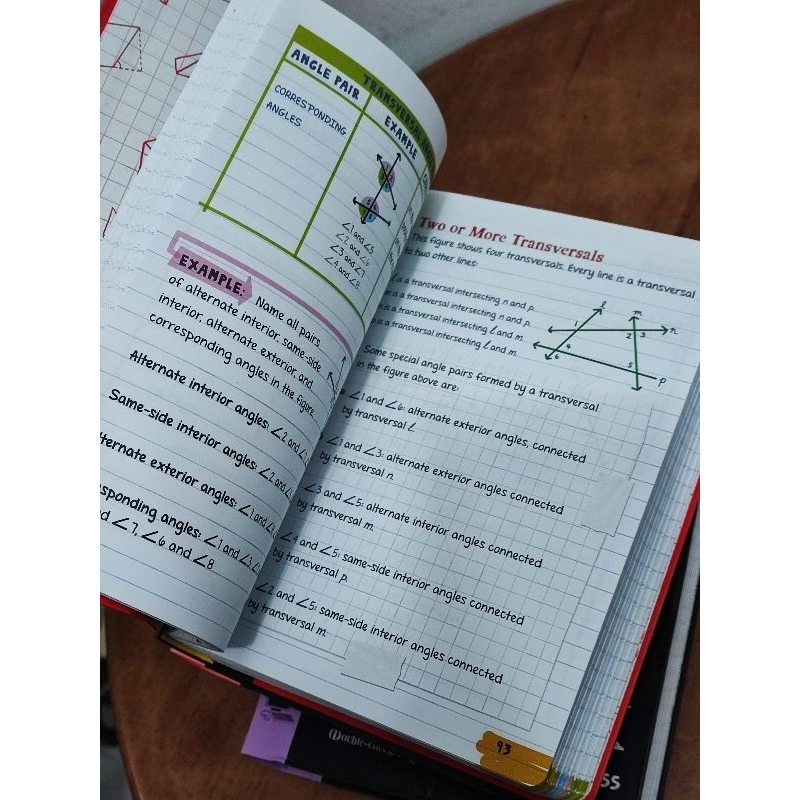 TRANSVERSAL
ANGLE PAIR
EXAMPLE
CORRESPONDING
ANGLES
∠1 and ∠5
∠2 and ∠6
∠3 and ∠7
∠4 and ∠8
EXAMPLE: Name all pairs
of alternate interior, same-side
interior, alternate exterior, and
corresponding angles in the figure
Alternate interior angles: ∠2 and
Same-side interior angles: ∠2 and
exterior angles: ∠1 and
angles: ∠1 and ∠3,
∠7, ∠6 and ∠8
Two or More Transversals
This figure shows four transversals. Every line is a transversal
two other lines:
is a transversal intersecting n and p.
is a transversal intersecting n and p.
is a transversal intersecting ℓ and m.
is a transversal intersecting ℓ and m.
ℓ m n p
1 2 3 4 5 6
Some special angle pairs formed by a transversal
in the figure above are:
∠1 and ∠6: alternate exterior angles, connected
by transversal ℓ.
∠1 and ∠3: alternate exterior angles connected
by transversal n.
∠3 and ∠5: alternate interior angles connected
by transversal m.
∠4 and ∠5: same-side interior angles connected
by transversal p.
∠2 and ∠5: same-side interior angles connected
by transversal m.
93
(Double-
SS